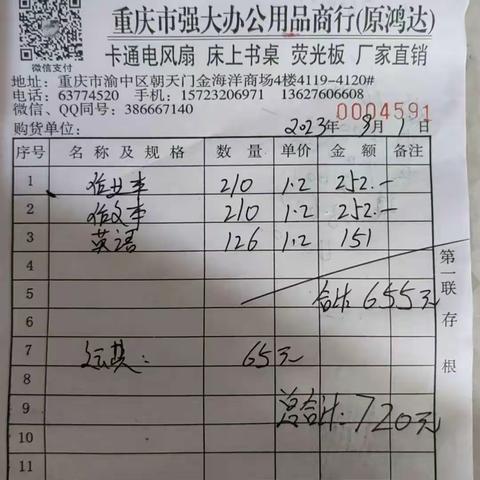 重庆市强大办公用品商行(原鸿达)
卡通电风扇 床上书桌 荧光板 厂家直销
微信支付
地址：重庆市渝中区朝天门金海洋商场4楼4119-4120#
电话：63774520 手机：15723206971 13627606608
微信、QQ同号：386667140
0004591
购货单位： 2023年9月1日
序号 名称及规格 数量 单价 金额 备注
1 作业本 210 1.2 252.-
2 作文本 210 1.2 252.-
3 英语 126 1.2 151
4
5 合计：655元
6
7 运费： 65元
8
9 总合计：720元
10
11
第一联存根